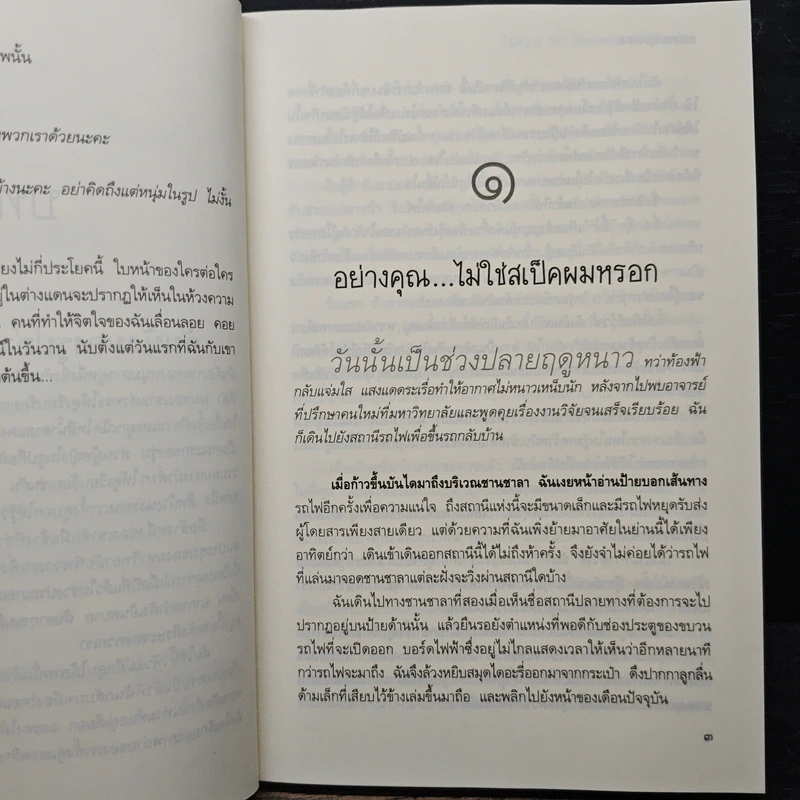 พนั้น
พวกเราด้วยนะคะ
้างนะคะ อย่าคิดถึงแต่หนุ่มในรูป ไม่งั้น
ยงไม่กี่ประโยคนี้ ใบหน้าของใครต่อใคร
ู่ในต่างแดนจะปรากฏให้เห็นในห้วงความ
คนที่ทำให้จิตใจของฉันเลื่อนลอย คอย
นี้ในวันวาน นับตั้งแต่วันแรกที่ฉันกับเขา
ต้นขึ้น...
๑
อย่างคุณ...ไม่ใช่สเป็คผมหรอก
วันนั้นเป็นช่วงปลายฤดูหนาว ทว่าท้องฟ้า
กลับแจ่มใส แสงแดดระเรื่อทำให้อากาศไม่หนาวเหน็บนัก หลังจากไปพบอาจารย์
ที่ปรึกษาคนใหม่ที่มหาวิทยาลัยและพูดคุยเรื่องงานวิจัยจนเสร็จเรียบร้อย ฉัน
ก็เดินไปยังสถานีรถไฟเพื่อขึ้นรถกลับบ้าน
เมื่อก้าวขึ้นบันไดมาถึงบริเวณชานชาลา ฉันเงยหน้าอ่านป้ายบอกเส้นทาง
รถไฟอีกครั้งเพื่อความแน่ใจ ถึงสถานีแห่งนี้จะมีขนาดเล็กและมีรถไฟหยุดรับส่ง
ผู้โดยสารเพียงสายเดียว แต่ด้วยความที่ฉันเพิ่งย้ายมาอาศัยในย่านนี้ได้เพียง
อาทิตย์กว่า เดินเข้าเดินออกสถานีนี้ได้ไม่ถึงห้าครั้ง จึงยังจำไม่ค่อยได้ว่ารถไฟ
ที่แล่นมาจอดชานชาลาแต่ละฝั่งจะวิ่งผ่านสถานีใดบ้าง
ฉันเดินไปทางชานชาลาที่สองเมื่อเห็นชื่อสถานีปลายทางที่ต้องการจะไป
ปรากฏอยู่บนป้ายด้านนั้น แล้วยืนรอยังตำแหน่งที่พอดีกับช่องประตูของขบวน
รถไฟที่จะเปิดออก บอร์ดไฟฟ้าซึ่งอยู่ไม่ไกลแสดงเวลาให้เห็นว่าอีกหลายนาที
กว่ารถไฟจะมาถึง ฉันจึงล้วงหยิบสมุดไดอะรี่ออกมาจากกระเป๋า ดึงปากกาลูกลื่น
ด้ามเล็กที่เสียบไว้ข้างเล่มขึ้นมาถือ และพลิกไปยังหน้าของเดือนปัจจุบัน
๓